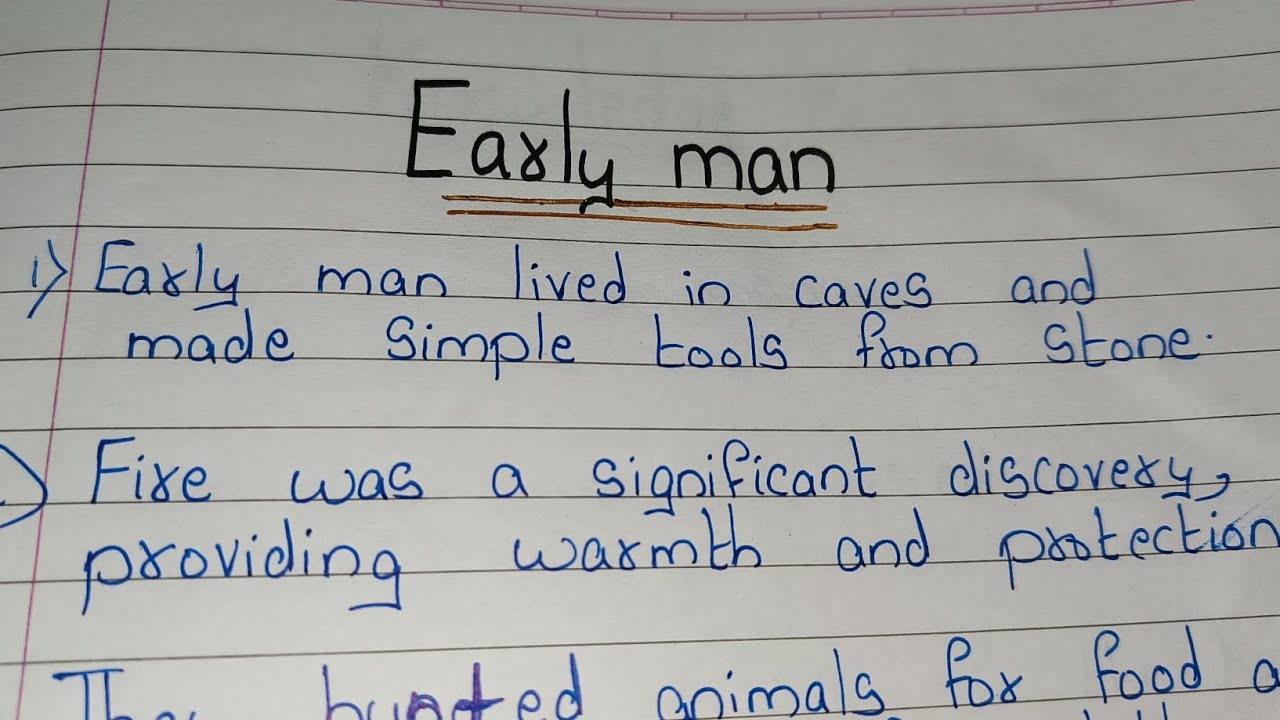 Early man
1) Early man lived in caves and
made simple tools from stone.
) Fire was a significant discovery,
providing warmth and protection
hunted animals for food a